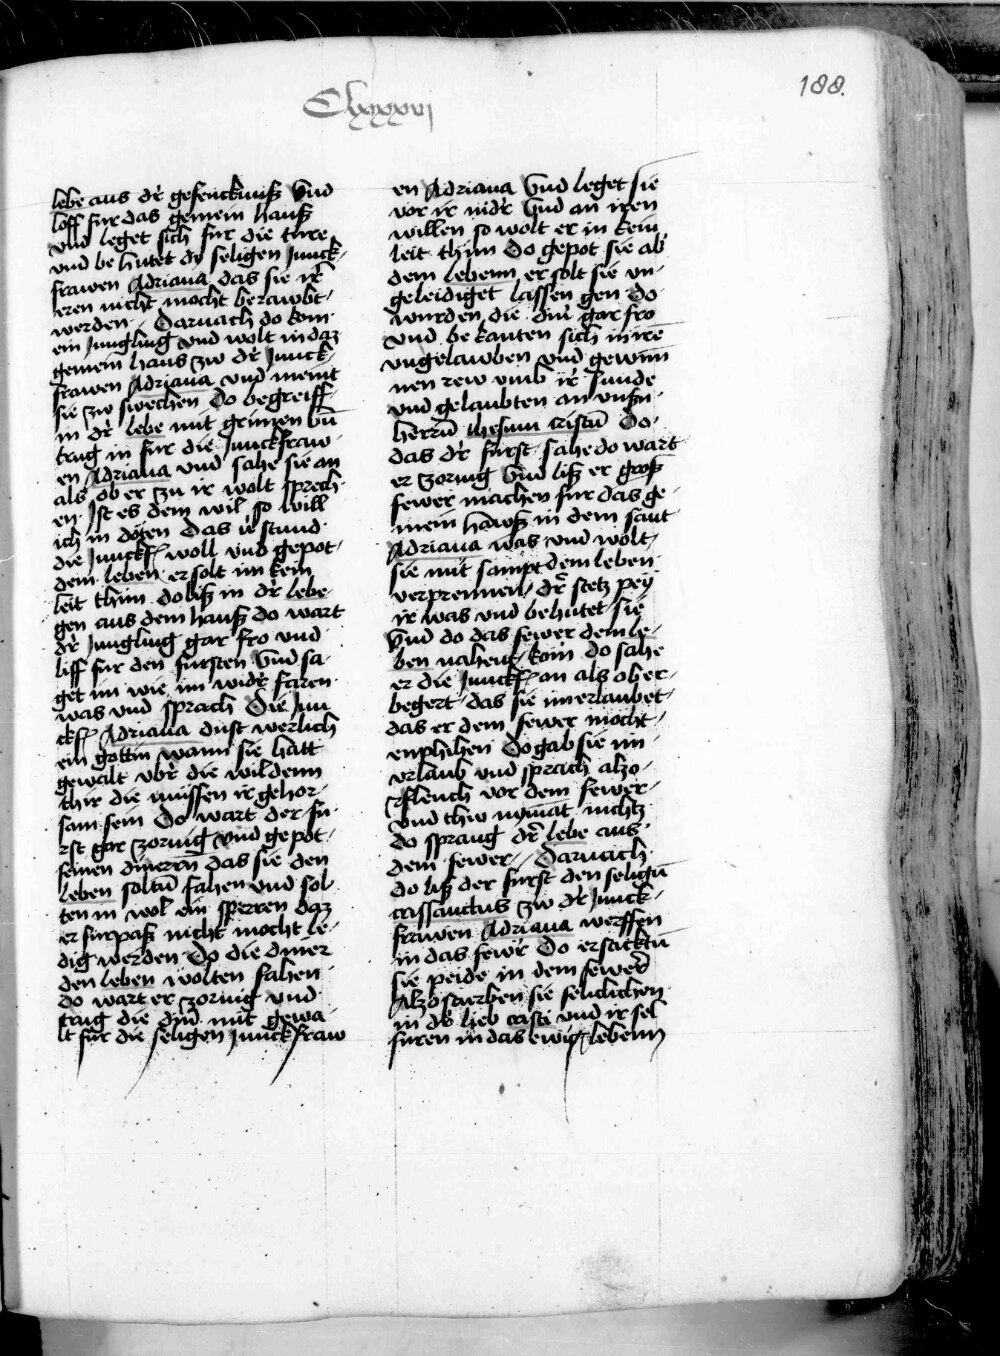 188.
Clxxxvi
lebe aus dr gefenckniß Vnd
loff fur das gemein hauß
vnd leget sich fur die ture
vnd be hutet dy seligen Junck-
frawen Adriana das sie ir
eren nicht mocht berawbt
werden. Darnach do kom
ein Jungling vnd wolt in daz
gemein haus zw dr Junck-
frawen Adriana vnd meint
sie zw swechen Do begreiff
in dr lebe mit grimen vn
trug in fur die Junckfraw-
en Adriana vnd sahe sie an
als ob er zu ir wolt sprech-
en Ist es dem wil so will
ich in döten Das v̈stund
die Junckf woll vnd gepot
dem leben er solt im kein
leit thun do liß in dr lebe
gen aus dem hauß do wart
dr Jungling gar fro vnd
liff fur den fursten Vnd sa-
get im wie im widr faren
was vnd sprach Die Jun
ckf Adriana dust werlich
ein gottin wann sie hatt
gewalt vbr die wildenn
thir die müssen ir gehor-
sam sein Do wart der fu
rst gar zornig vnd gepot
seinen dinernn das sie den
leben soltn fahen vnd sol-
ten in wol ein sperren daz
er furpaß nicht mocht le-
dig werden Do die diner
den leben wolten fahen
do wart er zornig vnd
trug die din mit gewa-
lt fur die seligen Junckfraw
en Adriana Vnd leget sie
vor ir nidr Vnd an iren
willen so wolt er in kein
leit thun Do gepot sie ab
dem lebenn er solt sie vn-
geleidiget lassen gen Do
wurden die din gar fro
vnd be kanten sich in ire
vngelawben vnd gewun
nen rew vmb ir sunde
vnd gelaubten an vnßn
herrn Jhesum cristu Do
das dr furst sahe do wart
er zornig Vnd liß er groß
fewer machen fur das ge-
mein hawß in dem sant
Adriana was vnd wolt
sie mit sampt dem leben
verprennen dr stetz pey
ir was vnd behutet sie
Vnd do das fewer dem le-
ben nahent kom do sahe
er die Junckf an als ob er
begert das sie im erlaubet
das er dem fewer mocht
enphlihen Do gab sie im
vrlaub vnd sprach alzo
fleuch vor dem fewer
vnd thw nymat nichtz
do sprang dr lebe aus
dem fewer Darnach
do liß der furst den selign
crissanctus zw dr Junck-
frawen Adriana werffen
in das fewr Do ersticktn
sie peide in dem fewer
Alzo sturben sie seliclichen
in dr lieb cristi vnd ir sel
furen in das ewig lebenn